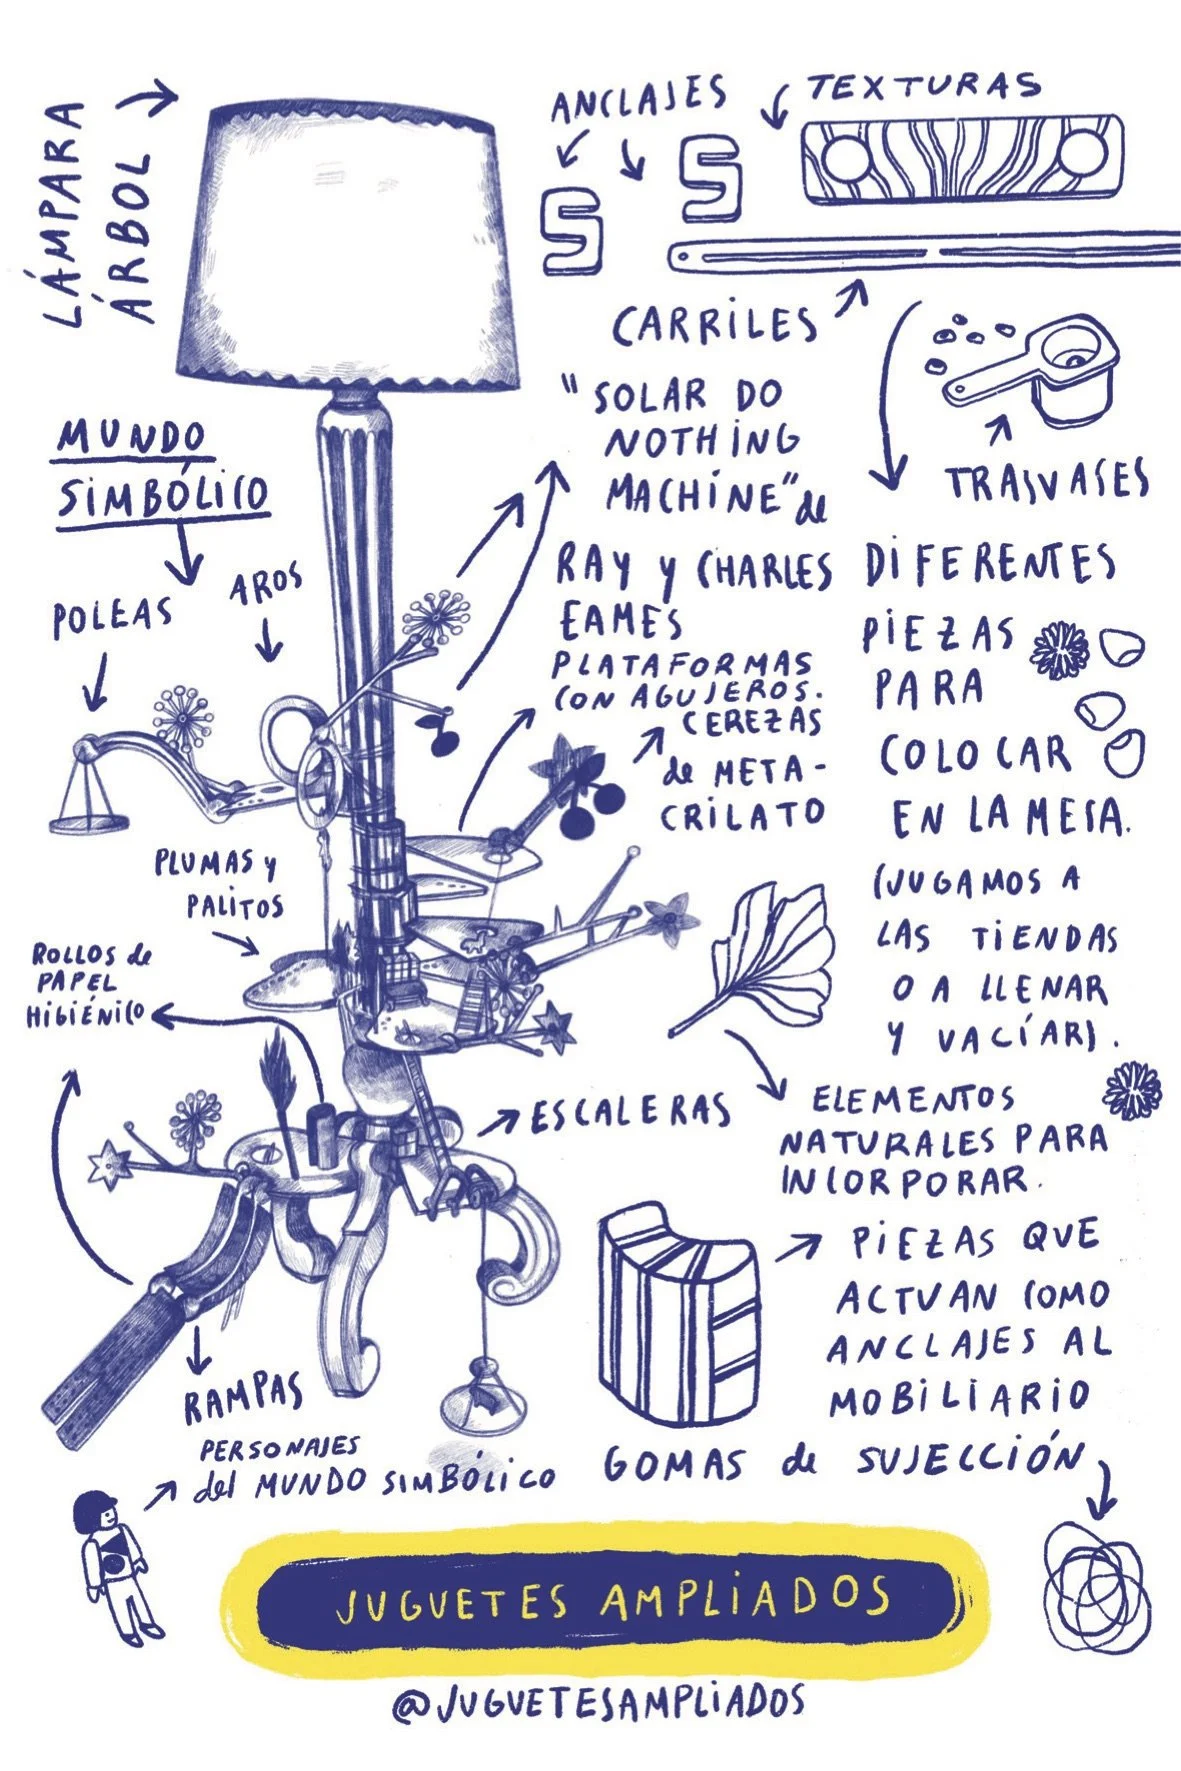 LÁMPARA
ÁRBOL
ANCLAJES
TEXTURAS
CARRILES
TRASVASES
"SOLAR DO
NOTHING
MACHINE" de
RAY y CHARLES
EAMES
PLATAFORMAS
CON AGUJEROS.
CEREZAS
de META-
CRILATO
DIFERENTES
PIEZAS
PARA
COLOCAR
EN LA MESA.
(JUGAMOS A
LAS TIENDAS
O A LLENAR
Y VACÍAR).
MUNDO
SIMBÓLICO
POLEAS
AROS
PLUMAS y
PALITOS
ROLLOS de
PAPEL
HIGIÉNICO
ESCALERAS
ELEMENTOS
NATURALES PARA
INCORPORAR.
PIEZAS QUE
ACTUAN COMO
ANCLAJES AL
MOBILIARIO
GOMAS de SUJECCIÓN
RAMPAS
PERSONAJES
del MUNDO SIMBÓLICO
JUGUETES AMPLIADOS
@JUGUETESAMPLIADOS